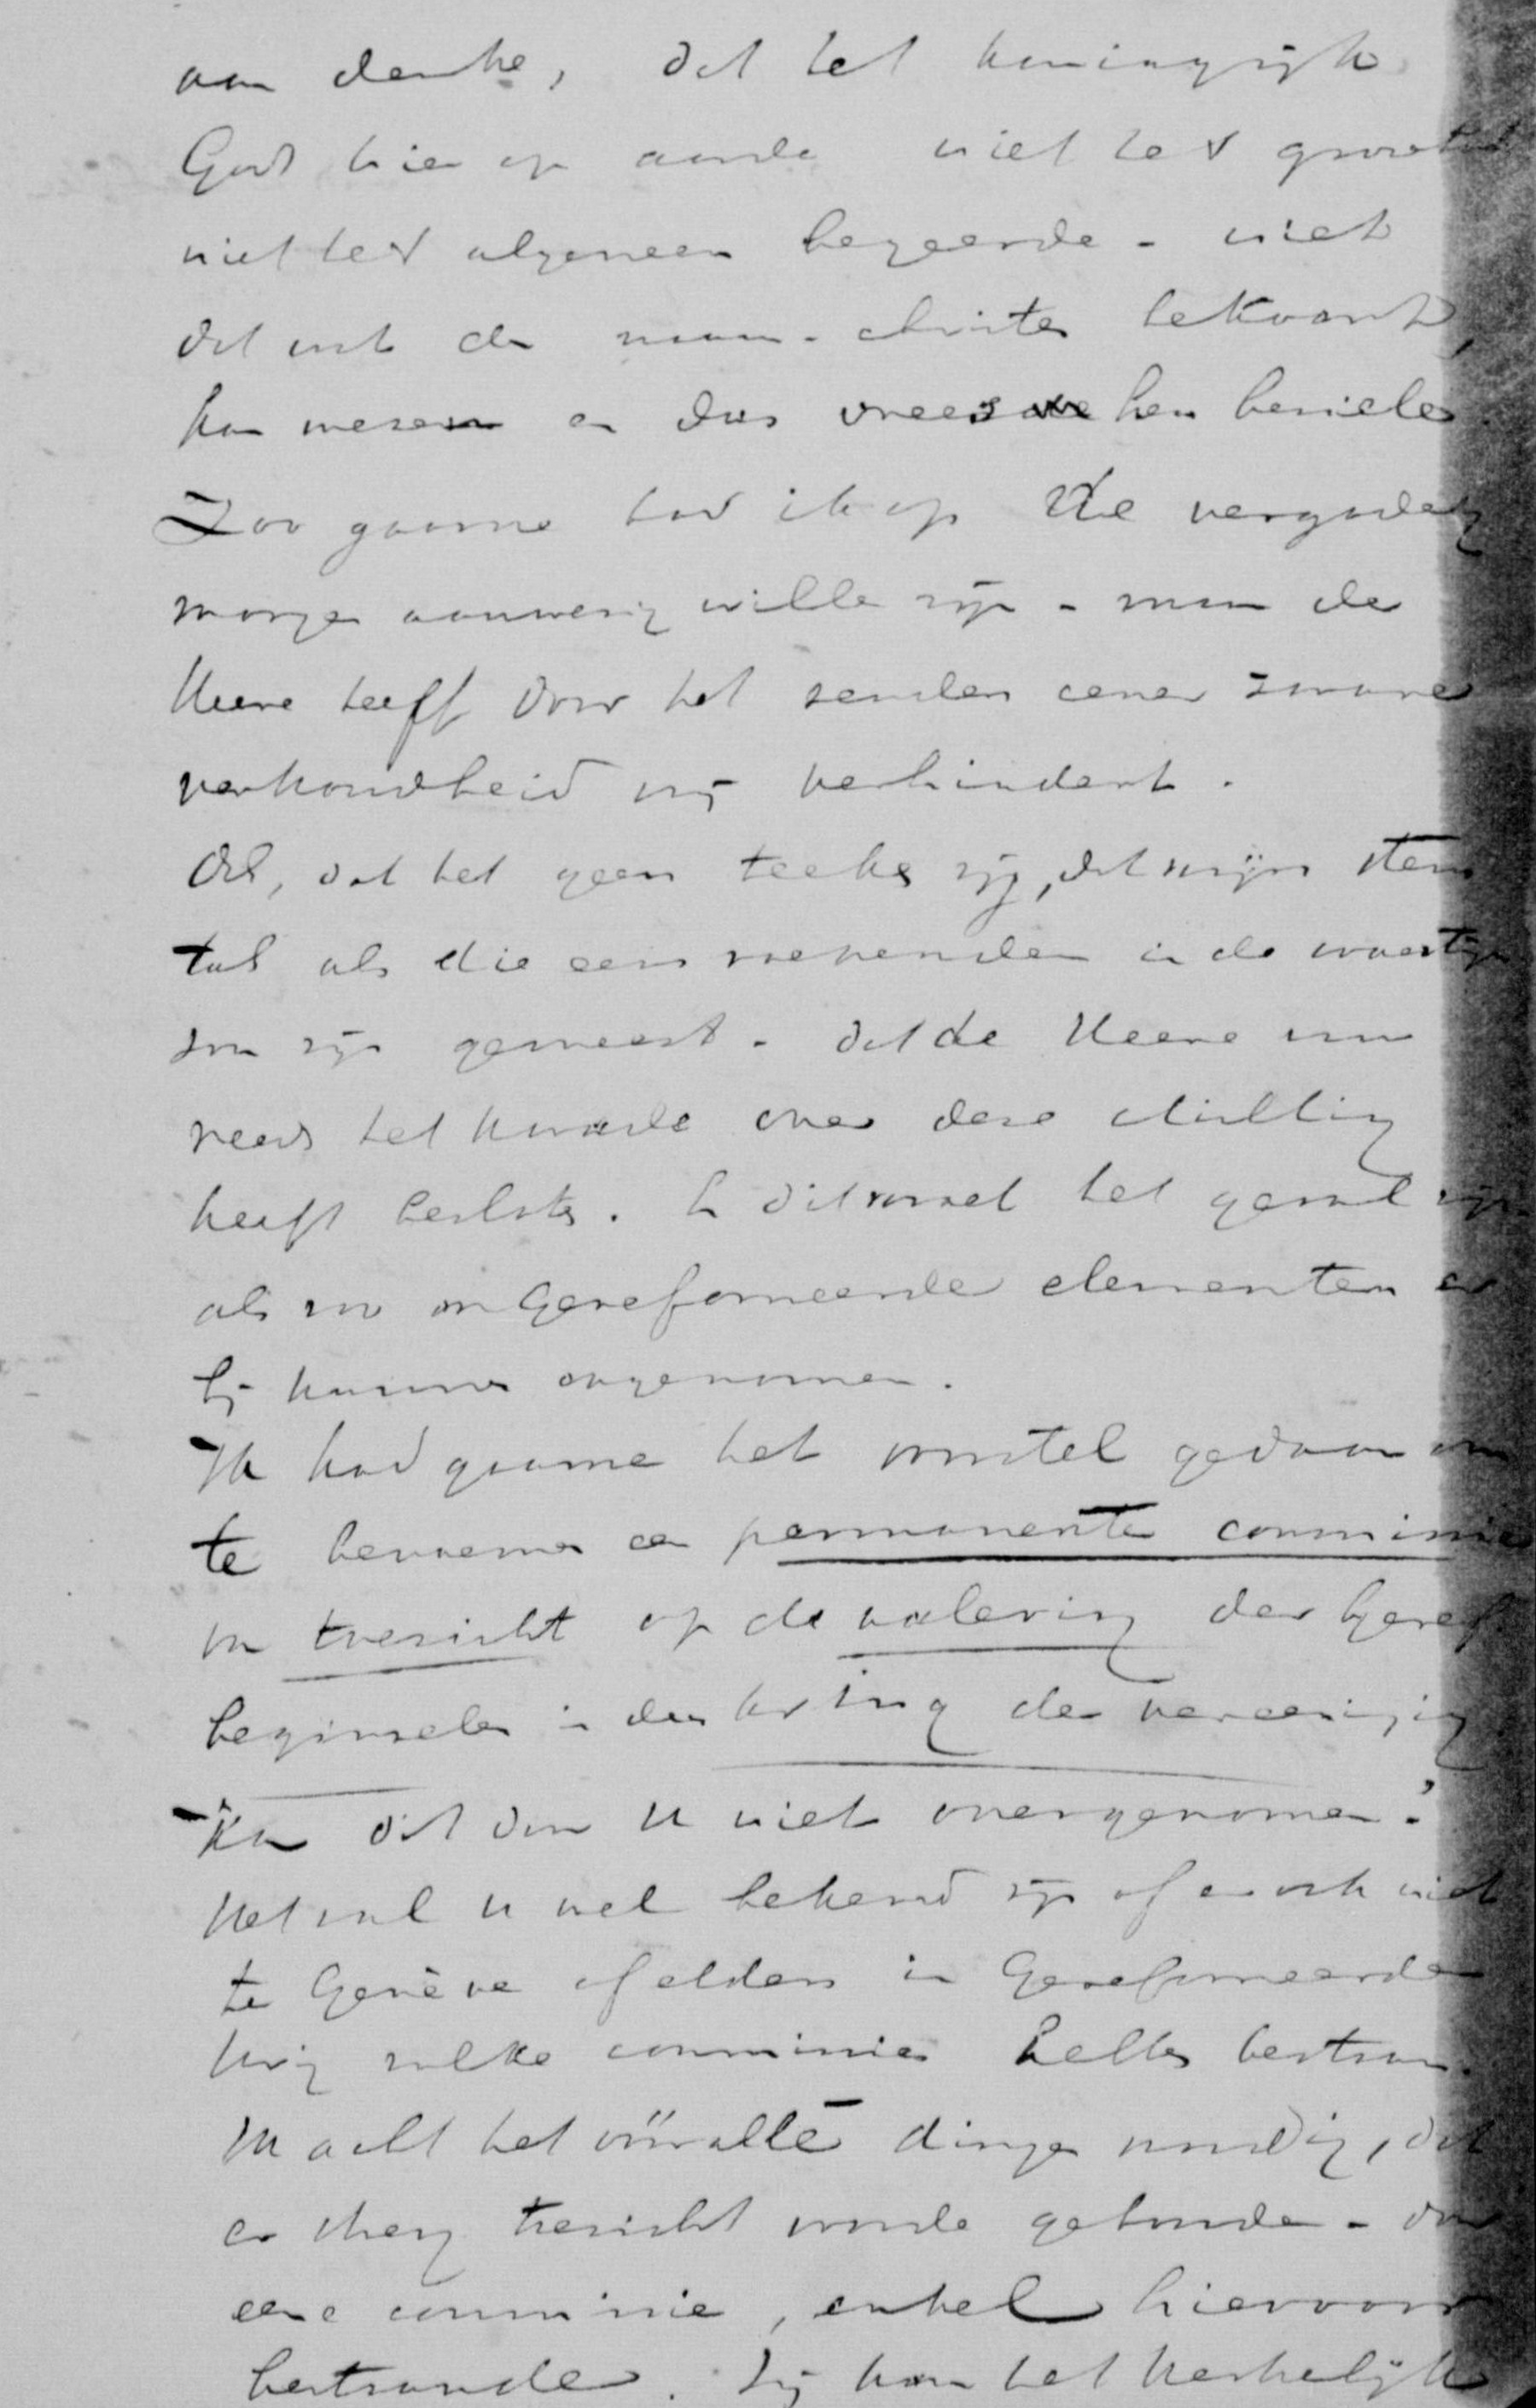 aan denke, dat het koningrijk
Gods hier op aarde niet het groote
niet het algemeen begeerde - niet
dat wat de naam-christen bekoort,
kan wezen en dus vrees hen bezielen.
Zoo gaarne had ik op de vergadering
morgen aanwezig willen zijn - maar de
Heere heeft door het zenden eener zware
verkoudheid mij verhindert.
Och, dat het geen teeken zij, dat mijn stem
tot als die eens roependen in de woestijn
zou zijn geweest - dat de Heere nu
reeds het kwade over deze stichting
heeft besloten. En dit moet het geval zijn
als zoo ongereformeerde elementen er
bij kunnen opgenomen.
Ik had gaarne het voorstel gedaan om
te benoemen een permanente commissie
van toezicht op de naleving der Geref.
beginselen in den kring der vereeniging
Kan dit door U niet overgenomen?
Het zal U wel bekend zijn of er ook niet
te Genève of elders in Gereformeerden
kring zulke commissies hebben bestaan.
Ik acht het vóór alle dingen noodig, dat
er streng toezicht worde gehouden - door
eene commissie, enkel hiervoor
bestaande. Zij kan het kerkelijk